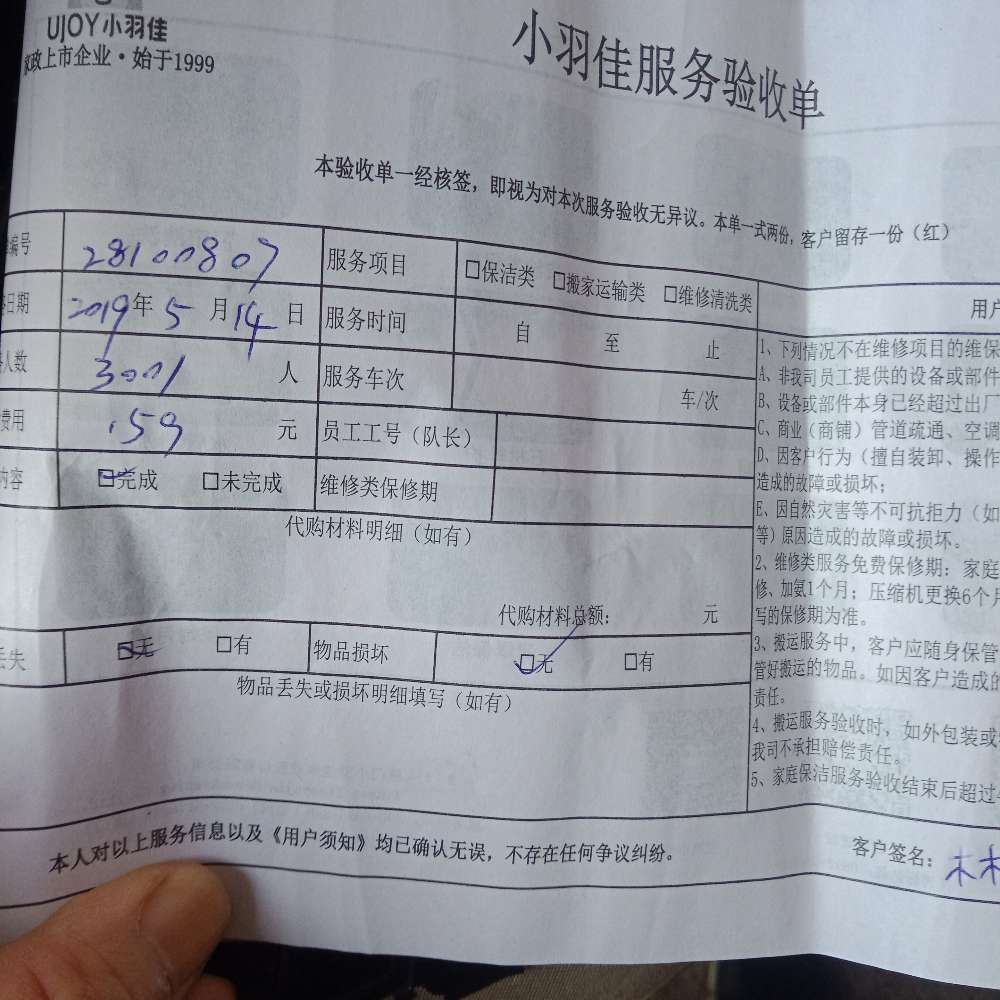 UJOY小羽佳
家政上市企业·始于1999
小羽佳服务验收单
本验收单一经核签，即视为对本次服务验收无异议。本单一式两份，客户留存一份（红）
编号 28100807 服务项目 □保洁类 □搬家运输类 □维修清洗类
日期 2019年5月14日 服务时间 自 至 止
人数 3001 人 服务车次 车/次
费用 159 元 员工工号（队长）
内容 ☑完成 □未完成 维修类保修期
代购材料明细（如有）
代购材料总额： 元
丢失 ☑无 □有 物品损坏 ☑无 □有
物品丢失或损坏明细填写（如有）
用户
1、下列情况不在维修项目的维保
A、非我司员工提供的设备或部件
B、设备或部件本身已经超过出厂
C、商业（商铺）管道疏通、空调
D、因客户行为（擅自装卸、操作
造成的故障或损坏；
E、因自然灾害等不可抗拒力（如
等）原因造成的故障或损坏。
2、维修类服务免费保修期：家庭
修、加氨1个月；压缩机更换6个月
写的保修期为准。
3、搬运服务中，客户应随身保管
管好搬运的物品。如因客户造成的
责任。
4、搬运服务验收时，如外包装或
我司不承担赔偿责任。
5、家庭保洁服务验收结束后超过
本人对以上服务信息以及《用户须知》均已确认无误，不存在任何争议纠纷。
客户签名：林